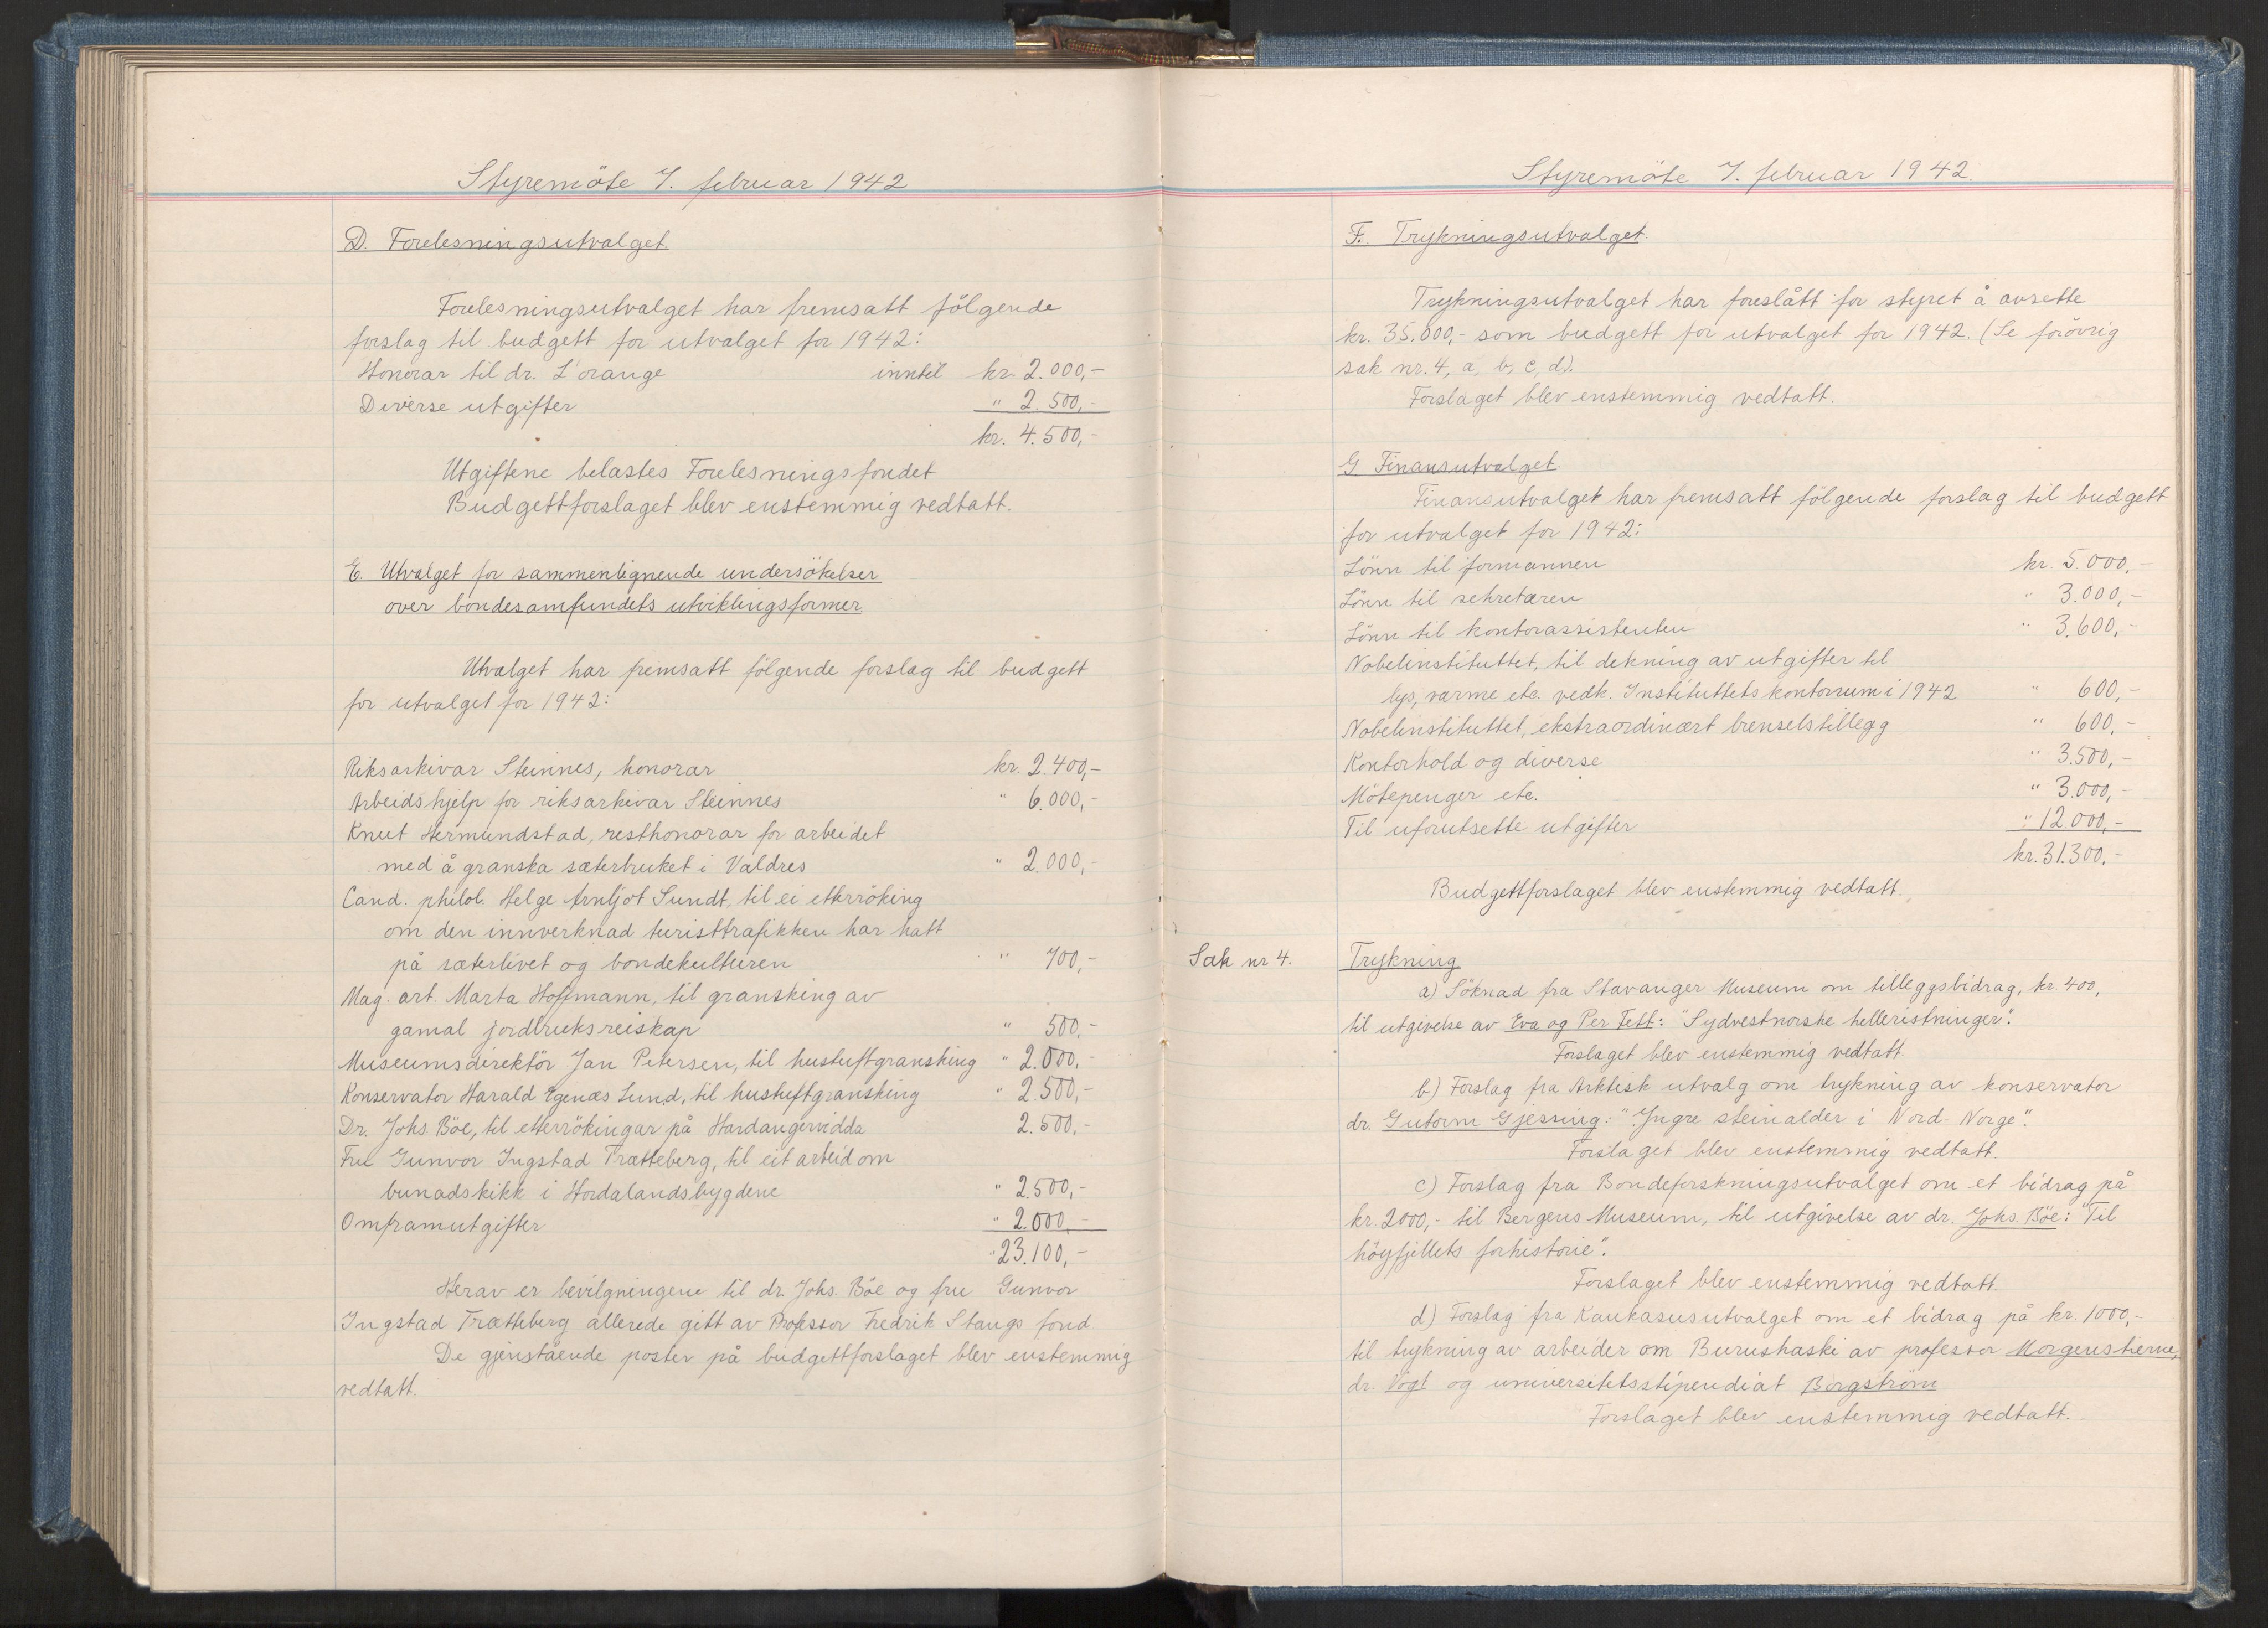 Styremöte 7. februar 1942
D. Forelesningsutvalget.
Forelesningsutvalget har fremsatt fölgende
forslag til budgett for utvalget for 1942:
Honorar til dr. L'orange inntil kr. 2.000,-
Diverse utgifter " 2.500,-
kr. 4.500,-
Utgiftene belastes Forelesningsfondet
Budgettforslaget blev enstemmig vedtatt.
E. Utvalget for sammenlignende undersökelser
over bondesamfundets utviklingsformer.
Utvalget har fremsatt fölgende forslag til budgett
for utvalget for 1942:
Riksarkivar Steinnes, honorar kr. 2.400,-
Arbeidshjelp for riksarkivar Steinnes " 6.000,-
Knut Hermundstad, resthonorar for arbeidet
med å granska sæterbruket i Valdres " 2.000,-
Cand. philol. Helge Arntljot Sundt, til ei etterröking
om den innverknad turisttrafikken har hatt
på sæterlivet og bondekulturen " 700,-
Mag. art. Marta Hoffmann, til gransking av
gamal jordbruksreiskap " 500.-
Museumsdirektör Jan Petersen, til hustuftgransking " 2.000,-
Konservator Harald Egenæs Lund, til hustuftgransking " 2.500,-
Dr. Johs. Böe, til etterrökingar på Hardangervidda 2.500,-
Fru Gunvor Ingstad Trætteberg, til eit arbeid om
bunadskikk i Hordalandsbygdene " 2.500,-
Omframutgifter " 2.000,-
" 23.100,-
Herav er bevilgningene til dr. Johs. Böe og fru Gunvor
Ingstad Trætteberg allerede gitt av Professor Fredrik Stangs fond
De gjenstående poster på budgettforslaget blev enstemmig
vedtatt.
Styremöte 7. februar 1942.
F. Trykningsutvalget.
Trykningsutvalget har foreslått for styret å avsette
kr. 35.000,- som budgett for utvalget for 1942. (Se forövrig
sak nr. 4, a, b, c, d).
Forslaget blev enstemmig vedtatt.
G. Finansutvalget.
Finansutvalget har fremsatt fölgende forslag til budgett
for utvalget for 1942:
Lönn til formannen kr. 5.000,-
Lönn til sekretæren " 3.000,-
Lönn til kontorassistenten " 3.600,-
Nobelinstituttet, til dekning av utgifter til
lys, varme etc. vedk. Instituttets kontorrum i 1942 " 600,-
Nobelinstituttet, ekstraordinært brenselstillegg " 600,-
Kontorhold og diverse " 3.500,-
Mötepenger etc. " 3.000,-
Til uforutsette utgifter " 12.000,-
kr. 31.300.-
Budgettforslaget blev enstemmig vedtatt.
Sak nr 4. Trykning
a) Söknad fra Stavanger Museum om tilleggsbidrag, kr. 400,
til utgivelse av Eva og Per Fett: "Sydvestnorske helleristninger".
Forslaget blev enstemmig vedtatt.
b) Forslag fra Arktisk utvalg om trykning av konservator
dr. Gutorm Gjessing: "Yngre steinalder i Nord-Norge".
Forslaget blev enstemmig vedtatt.
c) Forslag fra Bondeforskningsutvalget om et bidrag på
kr. 2000,- til Bergens Museum, til utgivelse av dr. Johs. Böe: "Til
höyfjellets forhistorie".
Forslaget blev enstemmig vedtatt.
d) Forslag fra Kaukasusutvalget om et bidrag på kr. 1000,-
til trykning av arbeider om Burushaski av professor Morgenstierne,
dr. Vogt og universitetsstipendiat Borgström
Forslaget blev enstemmig vedtatt.